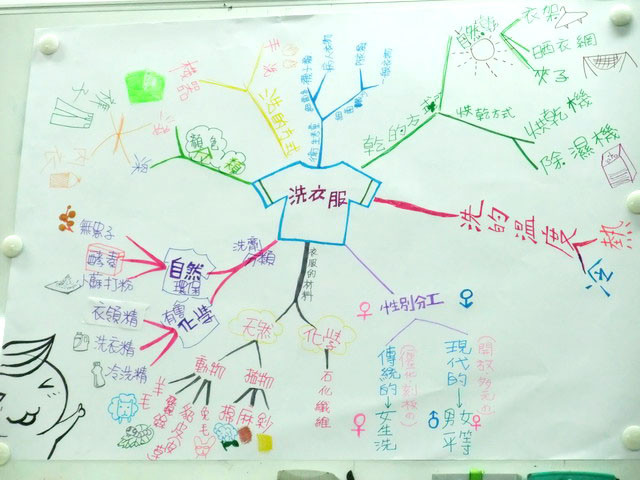 洗衣服
洗的方式
手洗
機器
顏色
分類
深
乾的方式
自然
衣架
晒衣網
夾子
烘乾方式
烘乾機
除濕機
洗的溫度
熱
冷
性別分工
傳統的
女生洗
現代的
男女平等
衣服的材料
天然
動物
羊毛
植物
棉
麻
紗
化學
石化纖維
洗劑
分類
自然
環保
無患子
酵素
小蘇打粉
化學
有毒
衣領精
洗衣精
冷洗精